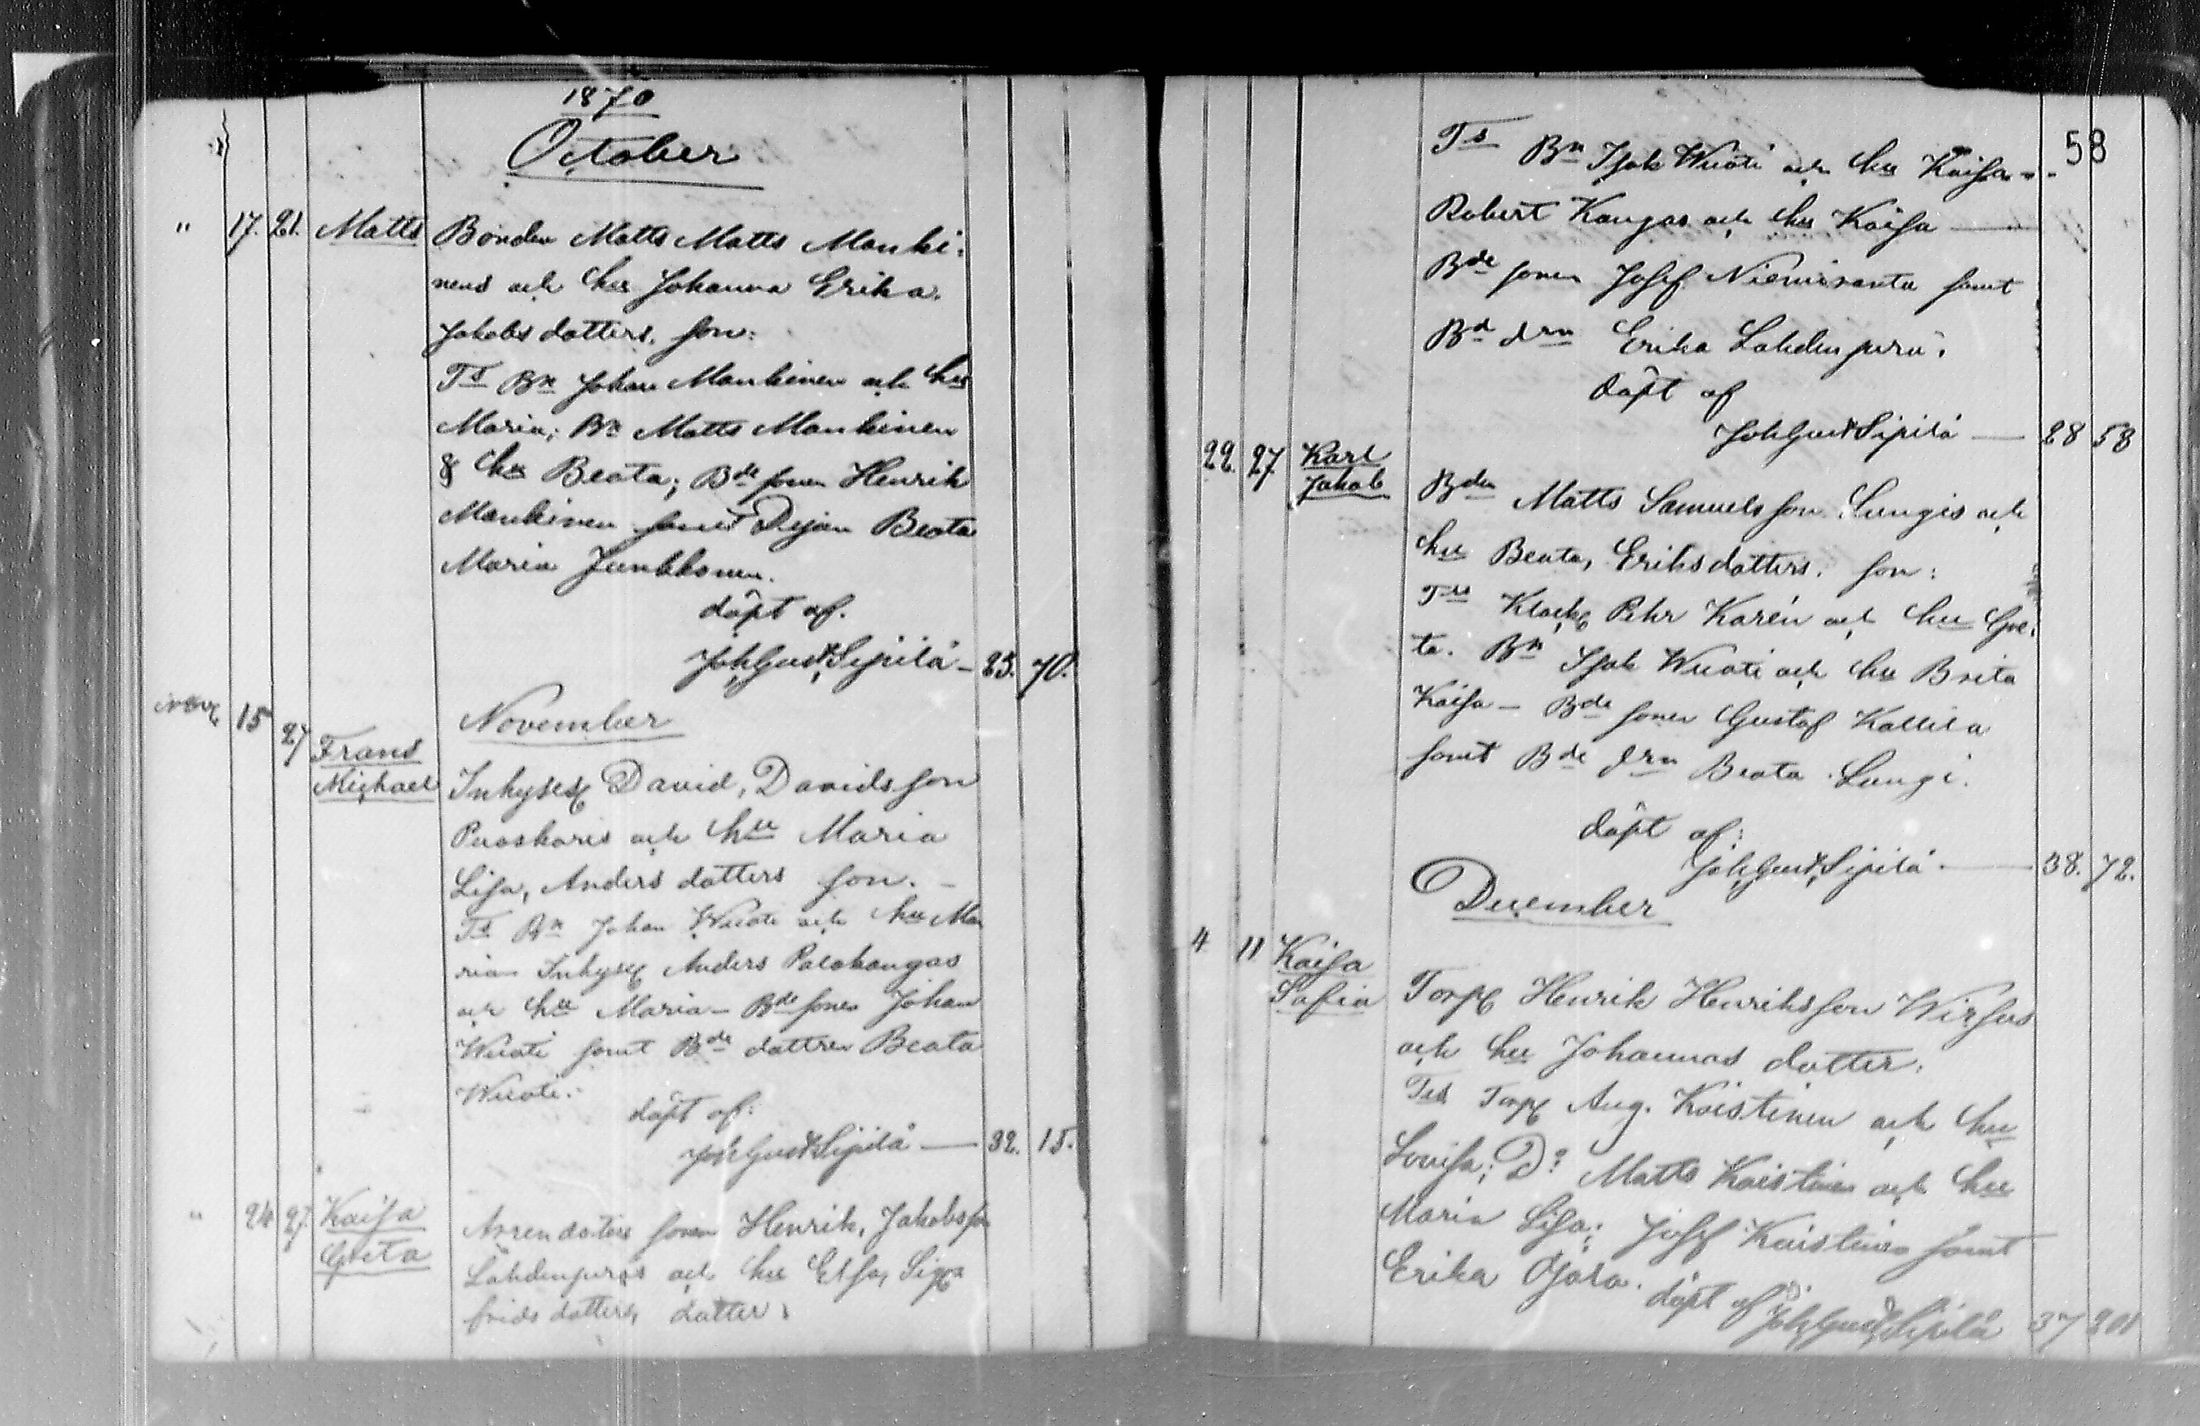 1870
October
" 17. 21. Matts Bonden Matts Matts Manki-
nens och hu Johanna Erika
Jakobsdotters, son:
Ts Bn Johan Mankinen och hu
Maria; Bn Matts Mankinen
& hu Beata; Bde sonen Henrik
Mankinen samt Pigan Beata
Maria Junkkonen.
döpt af.
Joh Gust Sipilä — 25. 70.
November
15 27 Frans
Michael Inhyses David, Davidsson
Puoskaris och hu Maria
Lisa, Anders dotters son. —
Ts Bn Johan Wuoti och hu Ma
ria Inhyses Anders Palokangas
och hu Maria — Bde sonen Johan
Wuoti samt Bde dottren Beata
Wuoti.
döpt af:
Joh Gust Sipilä — 32. 15.
" 24 27. Kaisa
Greta Arrendators sonen Henrik, Jakobsson
Lahdenperäs och hu Elsa, Sig
frids dotters, dotter:
58
Ts Bn Isak Wuoti och hu Kaisa —
Robert Kangas och hu Kaisa —
Bde sonen Josef Niemiranta samt
Bd drn Erika Lahdenperä.
döpt af
Joh Gust Sipilä — 28 58
22. 27. Karl
Jakob Bden Matts Samuelsson Lungis och
hu Beata, Eriksdotters. son:
Klock Pehr Karén och hu Gre-
ta. Bn Isak Wuoti och hu Brita
Kaisa — Bde sonen Gustaf Kallila
samt Bde drn Beata Lungi.
döpt af:
Joh Gust Sipilä — 38. 72.
December
4 11 Kaisa
Sofia Torp Henrik Henriksson Wirsus
och hu Johannas dotter.
Tes Torp Aug. Koistinen och hu
Lovisa; Do Matts Koistinen och hu
Maria Lisa; Josef Koistinen samt
Erika Ojala. döpt af Joh Gust Sipilä 37 201